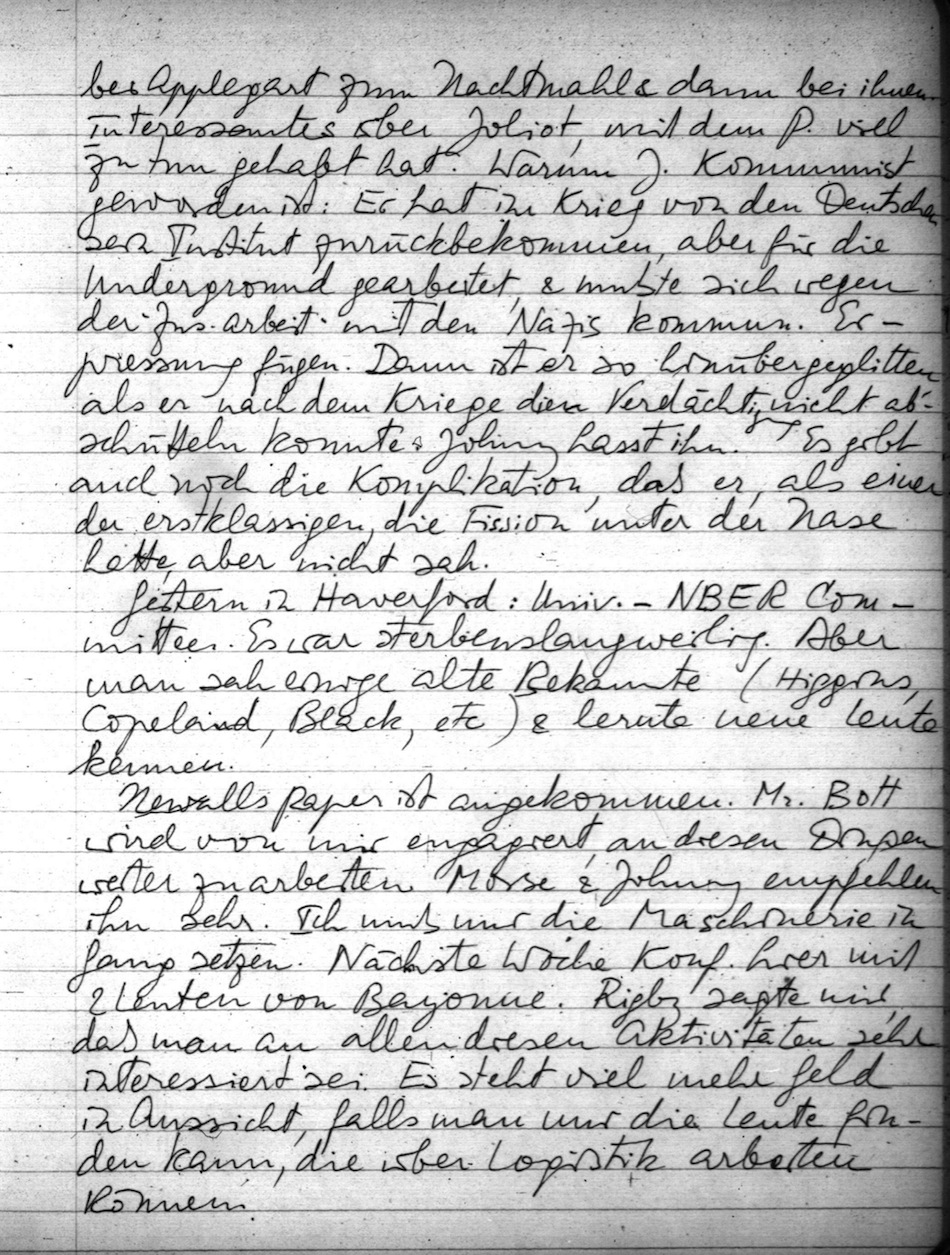 bei Applegart zum Nachtmahl & dann bei ihnen.
Interessantes über Joliot, mit dem P. viel
zu tun gehabt hat. Warum J. Kommunist
geworden ist: Er hat im Krieg von den Deutschen
sein Institut zurückbekommen, aber für die
Underground gearbeitet, & mußte sich wegen
der Zus.arbeit mit den Nazis kommun. Er-
pressung fügen. Dann ist er so hinübergeglitten
als er nach dem Kriege den Verdächtigungen nicht ab-
schütteln konnte. Johnny hasst ihn. Es gibt
auch noch die Komplikation, daß er, als einer
der erstklassigen, die Fission unter der Nase
hatte, aber nicht sah.
Gestern in Haverford: Univ. - NBER Com-
mittee. Es war sterbenslangweilig. Aber
man sah einige alte Bekannte (Higgins,
Copeland, Black, etc) & lernte neue Leute
kennen.
Newalls paper ist angekommen. Mr. Bott
wird von mir engagiert, an diesen Dingen
weiter zu arbeiten. Morse & Johnny empfehlen
ihn sehr. Ich muß nur die Maschinerie in
Gang setzen. Nächste Woche Konf. hier mit
2 Leuten von Bayonne. Rigby sagte mir,
daß man an allen diesen Aktivitäten sehr
interessiert sei. Es steht viel mehr Geld
in Aussicht, falls man nur die Leute fin-
den kann, die über Logistik arbeiten
können.